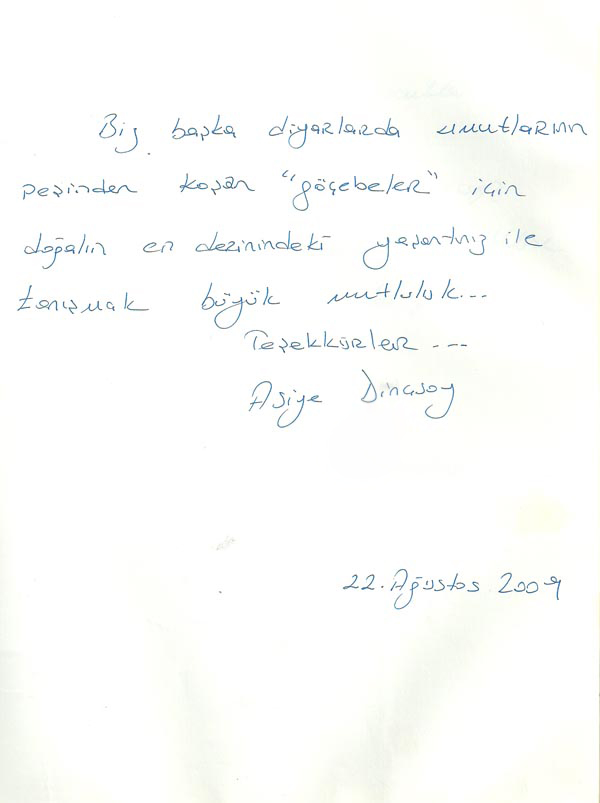 Biz başka diyarlarda umutlarının
peşinden koşan "göçebeler" için
doğalın en derinindeki yaşantınız ile
tanışmak büyük mutluluk...
Teşekkürler ---
Asiye Dinçsoy
22. Ağustos 2009